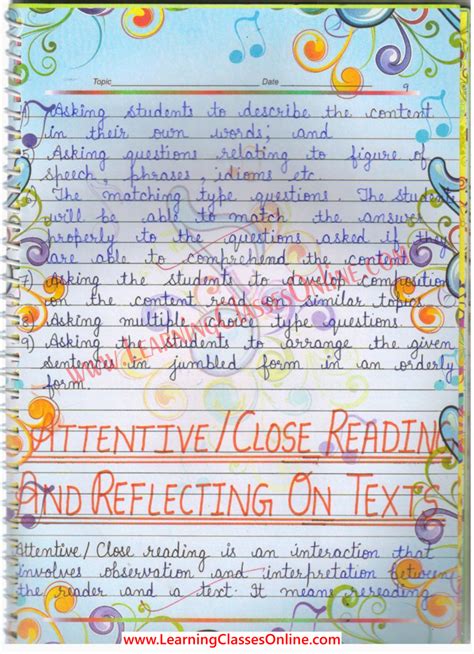 Topic Date 9
4) Asking students to describe the content
in their own words; and
5) Asking questions relating to figure of
speech, phrases, idioms etc.
6) The matching type questions. The students
will be able to match the answer
properly to the questions asked if they
are able to comprehend the content.
7) Asking the student to develop composition
on the content read on similar topics
8) Asking multiple choice type questions.
9) Asking the students to arrange the given
sentences in jumbled form in an orderly
form.
www.LearningClassesOnline.com
ATTENTIVE/CLOSE READIN
AND REFLECTING ON TEXTS
Attentive/Close reading is an interaction that
involves observation and interpretation between
the reader and a text. It means rereading
www.LearningClassesOnline.com